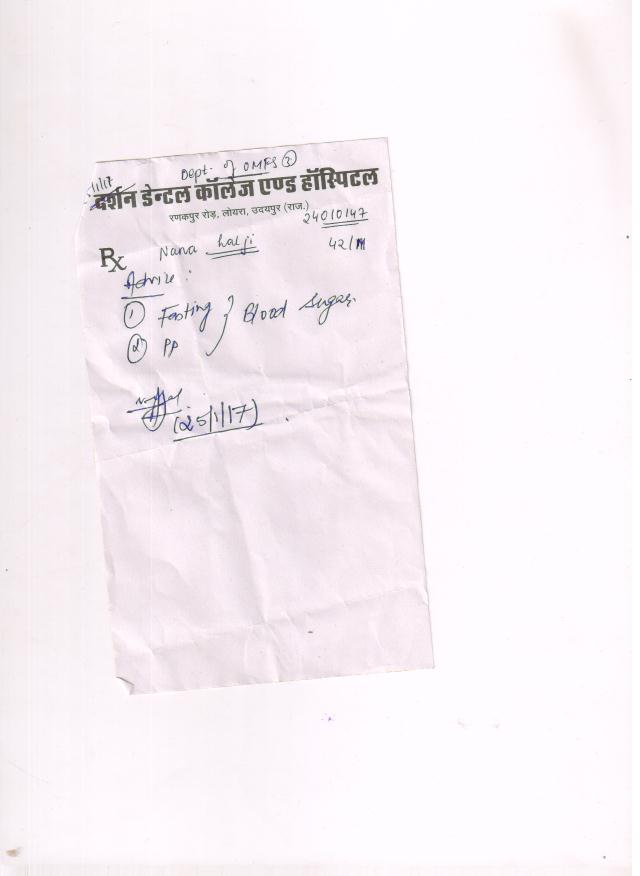 Dept. of OMFS ③
/1/17
दर्शन डेन्टल कॉलेज एण्ड हॉस्पिटल
रणकपुर रोड़, लोयरा, उदयपुर (राज.)
24010147
Rx Nana lalji 42/M
Advise :
① Fasting } Blood Sugar.
② PP
(25/1/17)